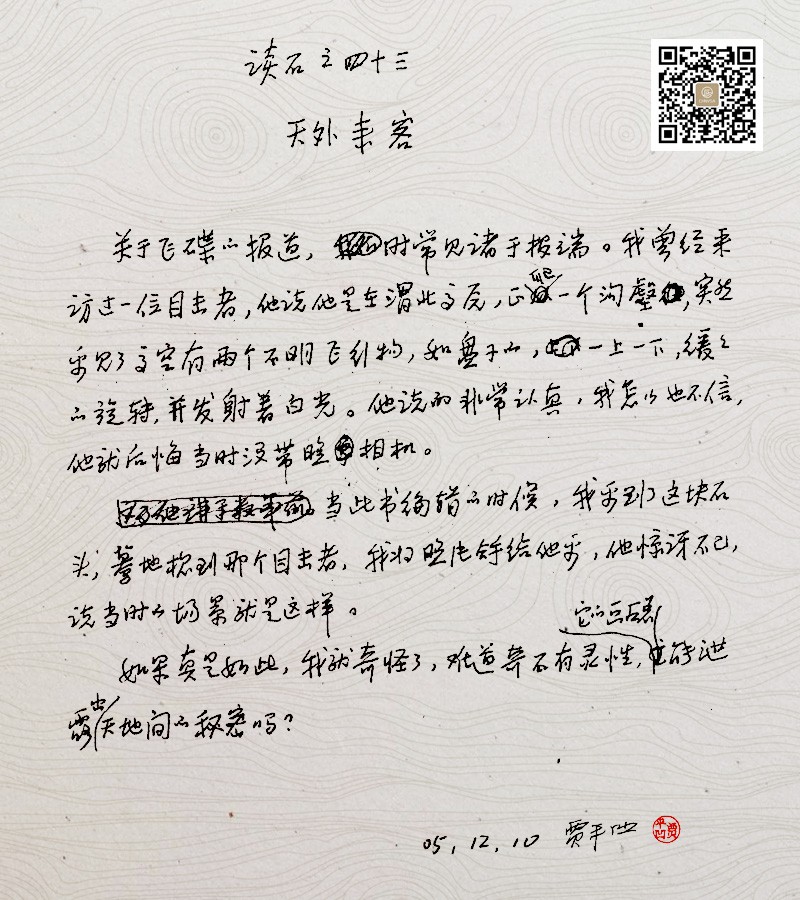 读石之四十三
天外来客
关于飞碟的报道,时常见诸于报端。我曾经采
访过一位目击者,他说他是在渭北高原,正爬一个沟壑,突然
看见了高空有两个不明飞行物,如盘子的,一上一下,缓缓
的旋转,并发射着白光。他说的非常认真,我怎么也不信,
他就后悔当时没带照相机。
当此书编辑的时候,我看到了这块石
头,蓦地想到那个目击者,我将照片拿给他看,他惊讶不已,
说当时的场景就是这样。
如果真是如此,我就奇怪了,难道奇石有灵性,它的画石面能泄
露出天地间的秘密吗?
05,12,10 贾平凹
贾平凹